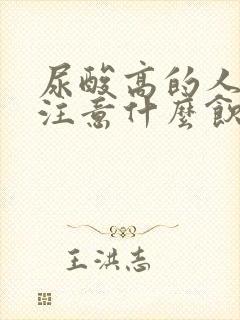 尿酸高的人
注意什麼飲
王洪志